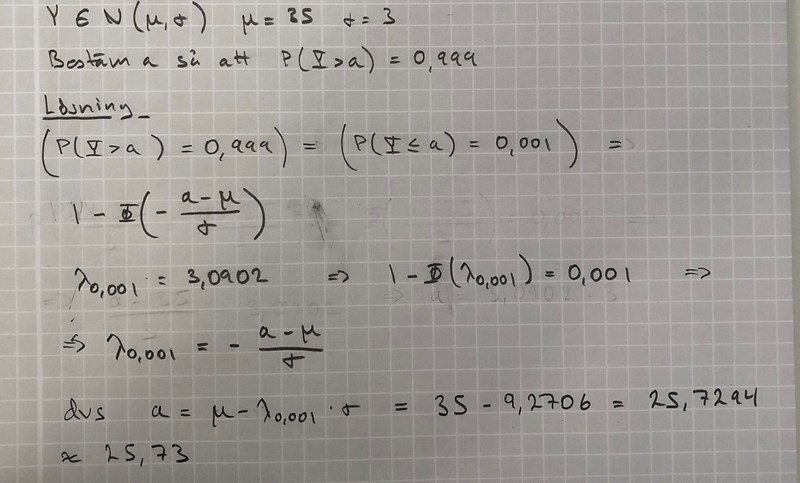 Y ∈ N(μ,σ) μ = 35 σ = 3
Bestäm a så att P(Y>a) = 0,999
Lösning
(P(Y>a) = 0,999) = (P(Y≤a) = 0,001) =>
1 - Φ(- (a-μ)/σ)
λ0,001 = 3,0902 => 1 - Φ(λ0,001) = 0,001 =>
=> λ0,001 = - (a-μ)/σ
dvs a = μ - λ0,001 · σ = 35 - 9,2706 = 25,7294
≈ 25,73